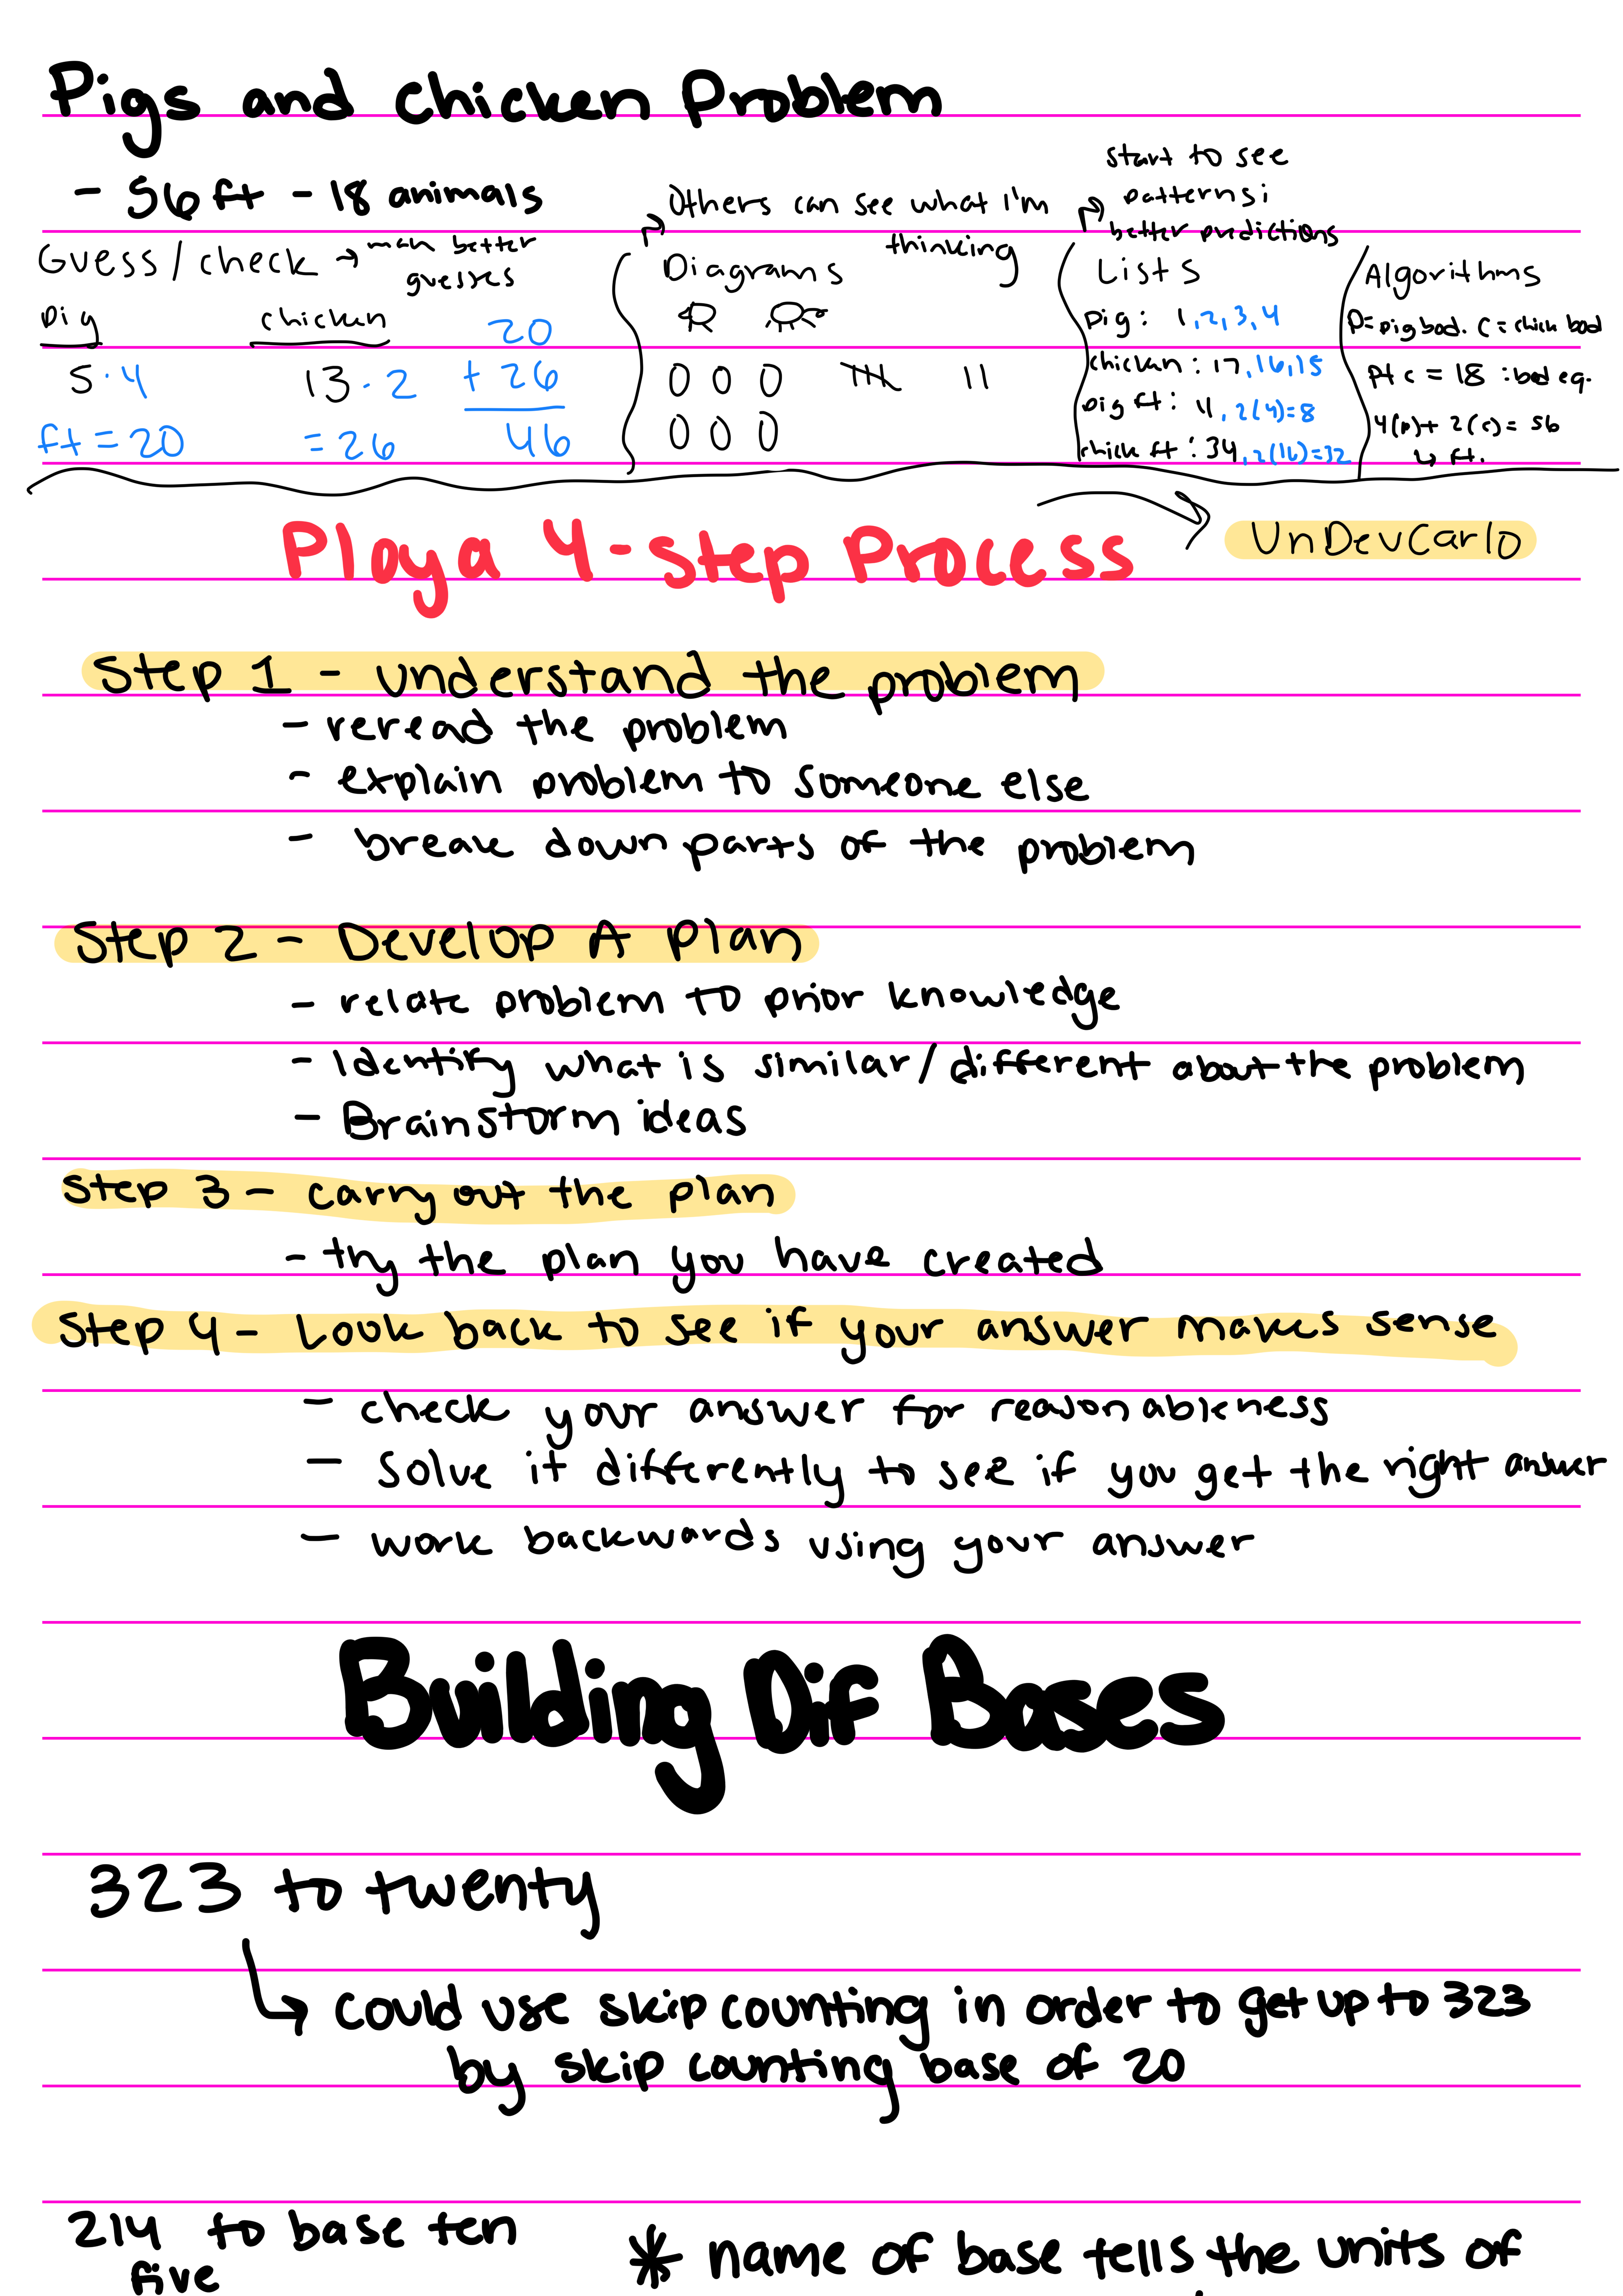 Pigs and chicken Problem
- 56 ft - 18 animals
Guess / check → man better
guesses
pig
chicken
5 · 4
13 · 2
ft = 20
= 26
20
+ 26
46
Others can see what I'm
thinking
Diagrams
start to see
patterns;
better predictions
Lists
pig: 1, 2, 3, 4
chicken: 17, 16, 15
pig ft: 4, 2(4)=8
chick ft: 34, 2(16)=32
Algorithms
P= pig bod. C = chick bod
P+ c = 18 : bod eq.
4(p)+ 2(c) = 56
↳ ft.
Ploya 4-step Process
→ UnDevCarlo
Step 1 - understand the problem
- reread the problem
- explain problem to someone else
- break down parts of the problem
Step 2 - Develop A plan
- relate problem to prior knowledge
- Identify what is similar/different about the problem
- Brainstorm ideas
Step 3 - carry out the plan
- try the plan you have created
Step 4 - Look back to see if your answer makes sense
- check your answer for reasonableness
- Solve it differently to see if you get the right answer
- work backwards using your answer
Building Dif Bases
323 to twenty
↳ could use skip counting in order to get up to 323
by skip counting base of 20
214 to base ten
five
* name of base tells the units of